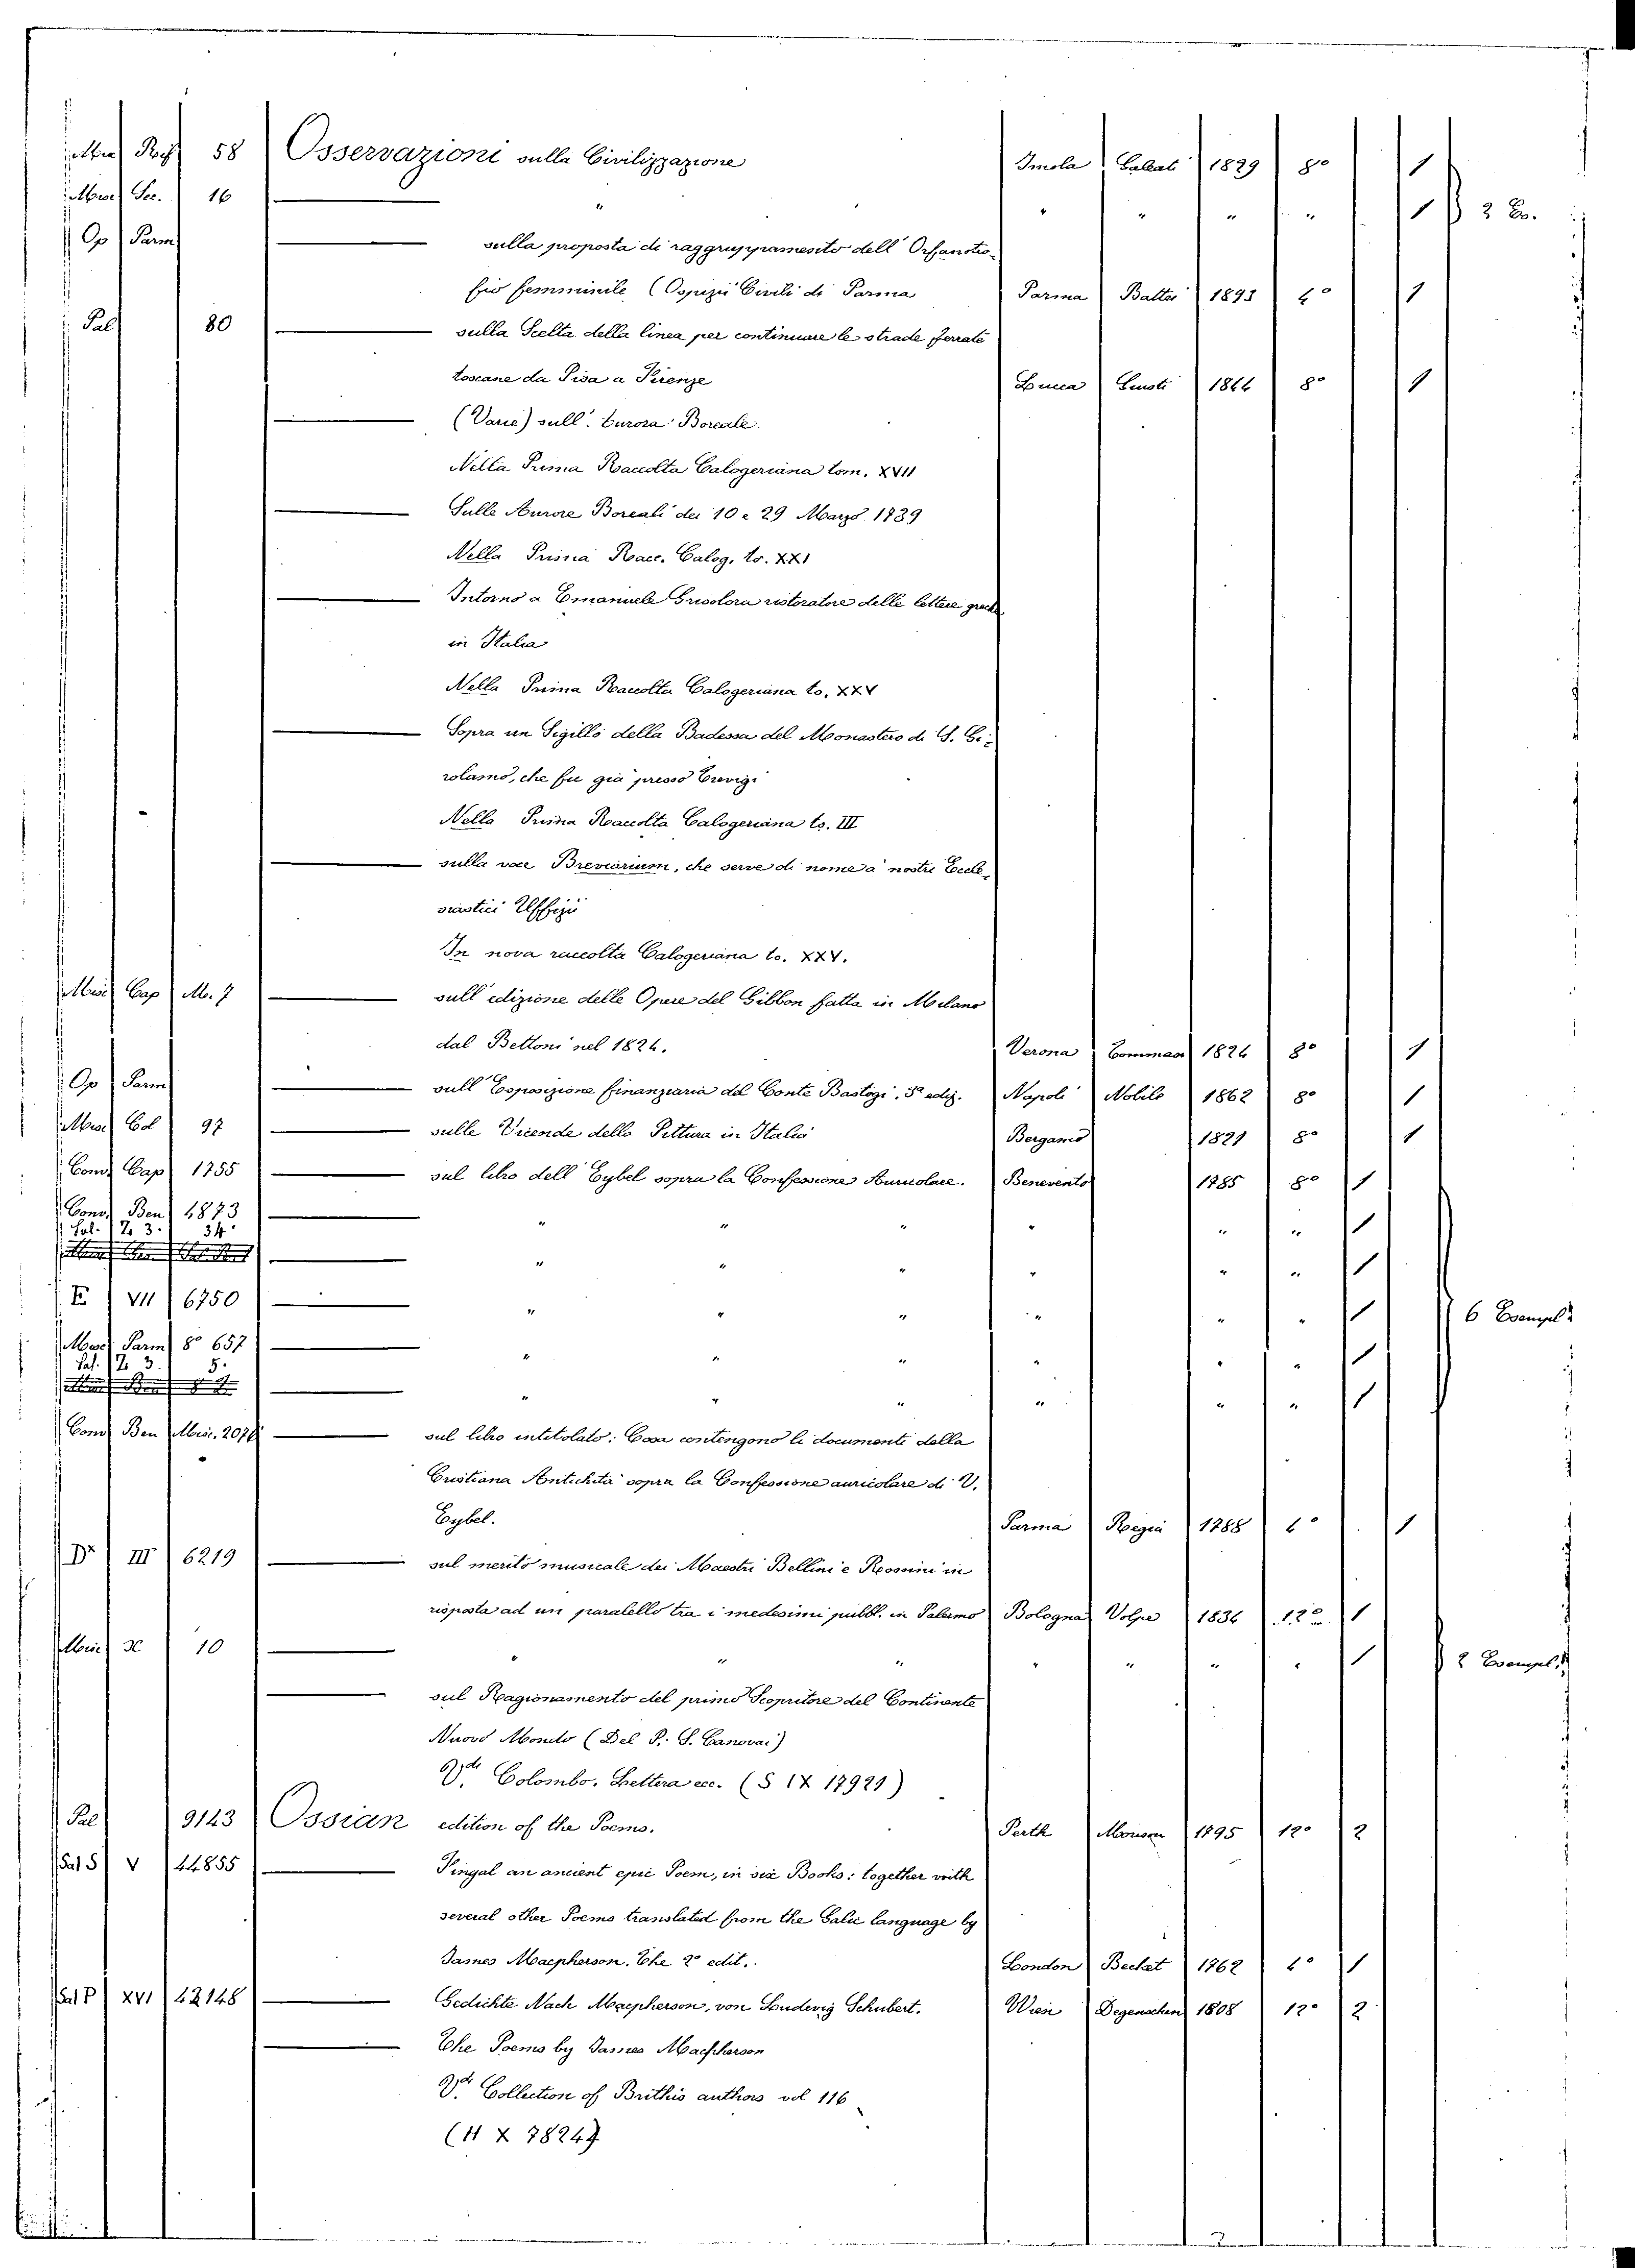 58 Osservazioni sulla Civilizzazione Imola Galeati 1829 8º 1
Misc. Sec. 16 " " " " " 1 2 Es.
Op Parm sulla proposta di raggruppamento dell' Orfanotro-
fio femminile (Ospizi Civili di Parma Parma Battei 1893 4º 1
Pal 80 sulla Scelta della linea per continuare le strade ferrate
toscane da Pisa a Firenze Lucca Giusti 1844 8º 1
(Varie) sull' Aurora Boreale.
Nella Prima Raccolta Calogeriana tom. XVII
Sulle Aurore Boreali dei 10 e 29 Marzo 1739
Nella Prima Racc. Calog. to. XXI
Intorno a Emanuele Grisolora ristoratore delle lettere greche
in Italia
Nella Prima Raccolta Calogeriana to. XXV
Sopra un Sigillo della Badessa del Monastero di S. Gi-
rolamo, che fu già presso Trevigi
Nella Prima Raccolta Calogeriana to. III
sulla voce Breviarium, che serve di nome a' nostri Eccle-
siastici Uffizii
In nova raccolta Calogeriana to. XXV.
Misc Cap M. 7 sull' edizione delle Opere del Gibbon fatta in Milano
dal Bettoni nel 1824. Verona Tommasi 1824 8º 1
Op Parm sull' Esposizione finanziaria del Conte Bastogi, 5ª ediz. Napoli Nobile 1862 8º 1
Misc Col 97 sulle Vicende della Pittura in Italia Bergamo 1821 8º 1
Conv Cap 1755 sul libro dell' Eybel sopra la Confessione Auricolare. Benevento 1785 8º 1
Conv. Ben 1873 " " " " " " 1
Sal. Z. 3. 34.
" " " " " " 1
E VII 6750 " " " " " " 1 6 Esempl.
Misc Parm 8º 657 " " " " " " 1
Sal. Z. 3. 5.
" " " " " " 1
Conv Ben Misc. 2076 sul libro intitolato: Cosa contengono li documenti della
Cristiana Antichità sopra la Confessione auricolare di V.
Eybel. Parma Regia 1788 4º 1
Dº III 6219 sul merito musicale dei Maestri Bellini e Rossini in
risposta ad un paralello tra i medesimi pubbl. in Palermo Bologna Volpe 1834 12º 1
Misc 3C 10 " " " " " " " 1 2 Esempl.
sul Ragionamento del primo Scopritore del Continente
Nuovo Mondo (Del P. S. Canovai)
Vde Colombo. Lettera ecc. (S IX 17921)
Pal 9143 Ossian edition of the Poems. Perth Morison 1795 12º 2
Sal S V 14855 Fingal an ancient epic Poem, in six Books: together with
several other Poems translated from the Galic language by
James Macpherson. The 2º edit. London Becket 1762 4º 1
Sal P XVI 42148 Gedichte Nach Macpherson, von Ludewig Schubert. Wien Degenschen 1808 12º 2
The Poems by James Macpherson
Vde Collection of Brithis authors vol 116
(H X 78247